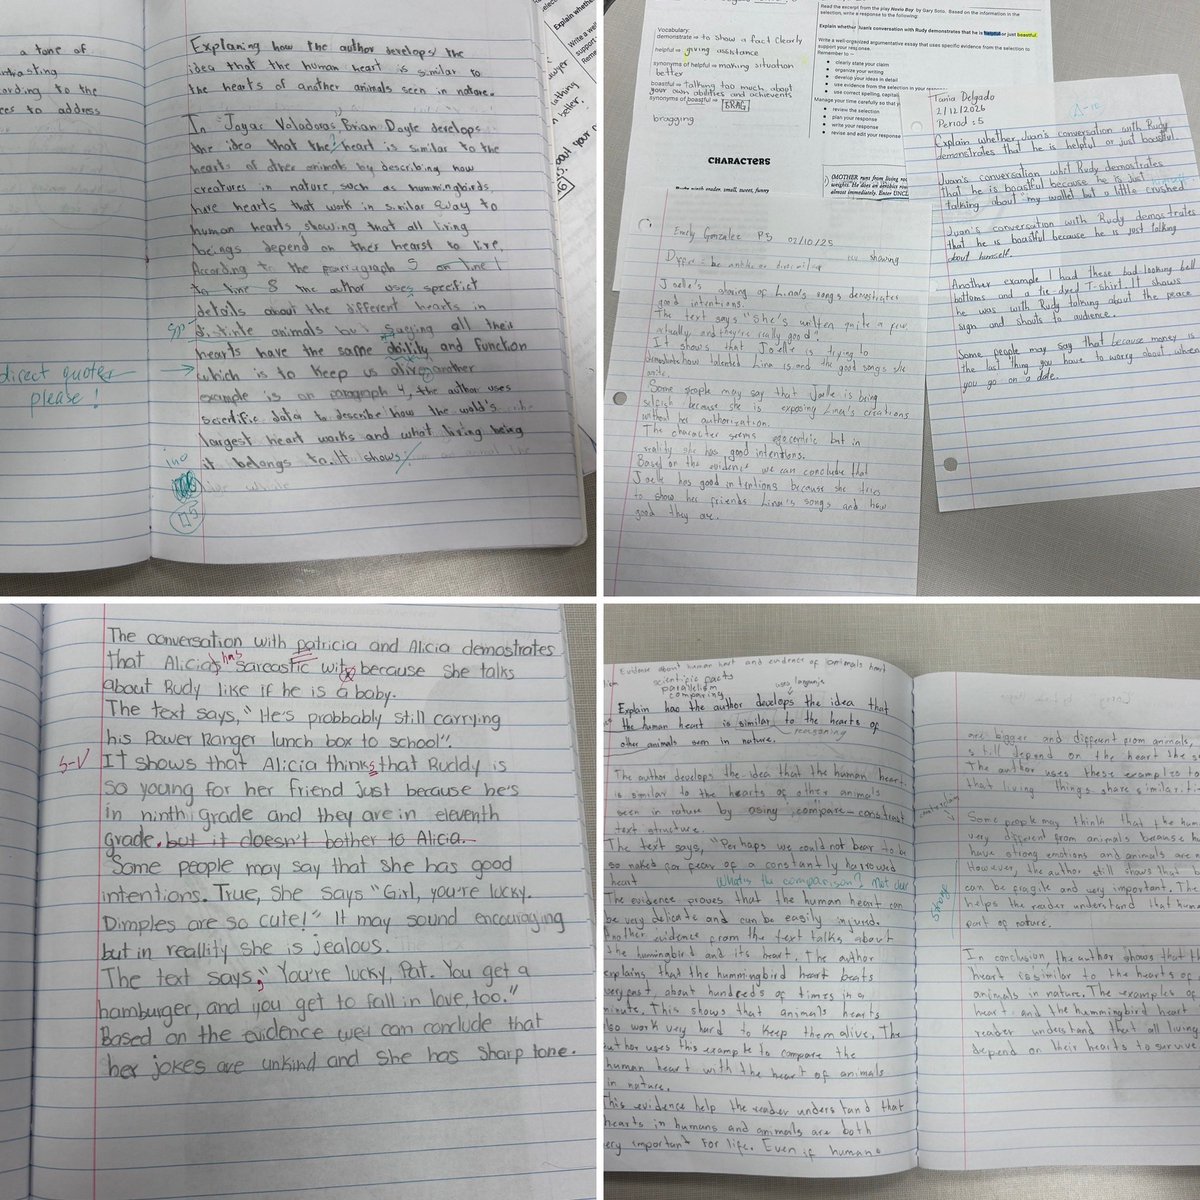 a tone of
to the
ces to address
direct quotes
please!
Explaning how the author develops the
idea that the human heart is similar to
the hearts of another animals seen in nature.
In "Joyas Voladoras", Brian Doyle develops
the idea that the heart is similar to the
hearts of other animals by describing how
creatures in nature, such as hummingbirds,
have hearts that work in similar way to
human hearts showing that all living
beings depend on ther hearst to live,
According to the parragraph 5 on line 1
to line 8 the author uses specifict
details about the different hearts in
sp
animals but saying all their
hearts have the same ability and function
which is to keep us alive another
example is on paragraph 4, the author uses
scientific data to describe how the wold's
largest heart works and what living being
it belongs to. It shows
Explain whether
Write a well
support
Reme
Vocabulary:
demonstrate → to show a fact clearly
helpful → giving assistance
synonyms of helpful → making situation
better
boastful → talking too much about
your own abilities and achievents
synonyms of boastful → BRAG
bragging
CHARACTERS
Read the excerpt from the play Novio Boy by Gary Soto. Based on the information in the
selection, write a response to the following:
Explain whether Juan's conversation with Rudy demonstrates that he is helpful or just boastful.
Write a well-organized argumentative essay that uses specific evidence from the selection to
support your response.
Remember to –
• clearly state your claim
• organize your writing
• develop your ideas in detail
• use evidence from the selection in your response
• use correct spelling, capitali
Manage your time carefully so that y
• review the selection
• plan your response
• write your response
• revise and edit your response
(MOTHER runs from living roo
weights. He does an aerobics rou
almost immediately. Enter UNCL
Tania Delgado
2/12/2026
Period: 5
Explain whether Juan's conversation with Rudy
demonstrates that he is helpful or just boastful.
Juan's conversation whit Rudy demostrates
that he is boastful because to is just
talking about my wallet but a little crushed
Juan's conversation with Rudy demostrates
that he is boastful because he is just talking
about himself.
Another example I had these bad-looking bell
bottoms and a tie-dyed T-shirt. It shows
he was with Rudy talking about the peace
sign and shouts to audience.
Some people may say that because money is
the last thing you have to worry about where
you go on a date.
Emily Gonzalez P5 02/10/25
showing
Joelle's sharing of Lina's songs demostrates
good intentions.
The text says "She's written quite a few,
actually and they're really good."
It shows that Joelle is trying to
demostrate how talented Lina is and the good songs she
write.
Some people may say that Joelle is being
selfish because she is exposing Lina's creations
without her authorization.
The character seems egocentric but in
reality she has good intentions.
Based on the evidence we can conclude that
Joelle has good intentions because she tries
to show her friends Lina's songs and how
good they are.
The conversation with patricia and Alicia demostrates
that Alicia's has sarcastic wit because she talks
about Rudy like if he is a baby.
The text says, "He's probbably still carrying
his Power Ranger lunch box to school".
S-V
It shows that Alicia thinks that Ruddy is
so young for her friend just because he's
in ninth grade and they are in eleventh
grade. but it doesn't bother to Alicia.
Some people may say that she has good
intentions. True, she says "Girl, you're lucky.
Dimples are so cute!" It may sound encouraging
but in reallity she is jealous.
The text says, "You're lucky, Pat. You get a
hamburger, and you get to fall in love, too."
Based on the evidence we can conclude that
her jokes are unkind and she has sharp tone.
Evidence about human hart and evidence of animals hart
scientific facts
parallelism
comparing
uses languaje
Explain has the author develops the idea that
the human heart is similar to the hearts of
reasoning
other animals seen in nature.
The author develops the idea that the human heart
is similar to the hearts of other animals
seen in nature by using "compare-constrast
text structure.
The text says, "Perhaps we could not bear to be
so naked for fear of a constantly harrowed
heart
What's the comparison? Not clear
The evidence proves that the human heart can
be very delicate and can be easily injured.
Another evidence from the text talks about
the hummingbird and its heart. The author
explains that the hummingbird heart beats
very fast about hundreds of times in a
minute. This shows that animals hearts
also work very hard to keep them alive. The
author uses this example to compare the
human heart with the heart of animals
in nature.
This evidence help the reader understand that
hearts in humans and animals are both
very important for life. Even if humans
are bigger and different from animals,
still depend on the heart
The author uses these examples to
that living things share similariti
Some people may think that the hum
very different from animals because h
have strong emotions and animals are n
However, the author still shows that b
can be fragile and very important. The
helps the reader understand that huma
part of nature.
In conclusion the author shows that th
heart is similar to the hearts of
animals in nature. The examples of
heart and the hummingbird heart
reader understand that all living
depend on their hearts to survive